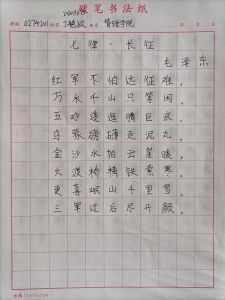 硬笔书法纸
管理学院
七律·长征
毛泽东
红军不怕远征难，
万水千山只等闲。
五岭逶迤腾巨浪，
乌蒙磅礴走泥丸。
金沙水拍云崖暖，
大渡桥横铁索寒。
更喜岷山千里雪，
三军过后尽开颜。